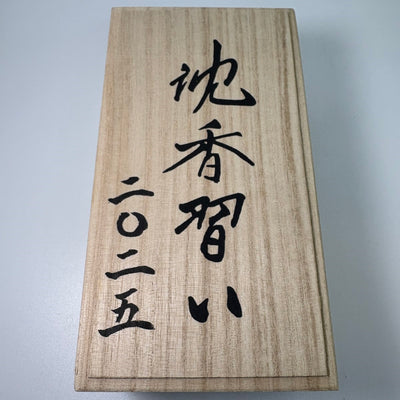 沈香習い
二〇二五